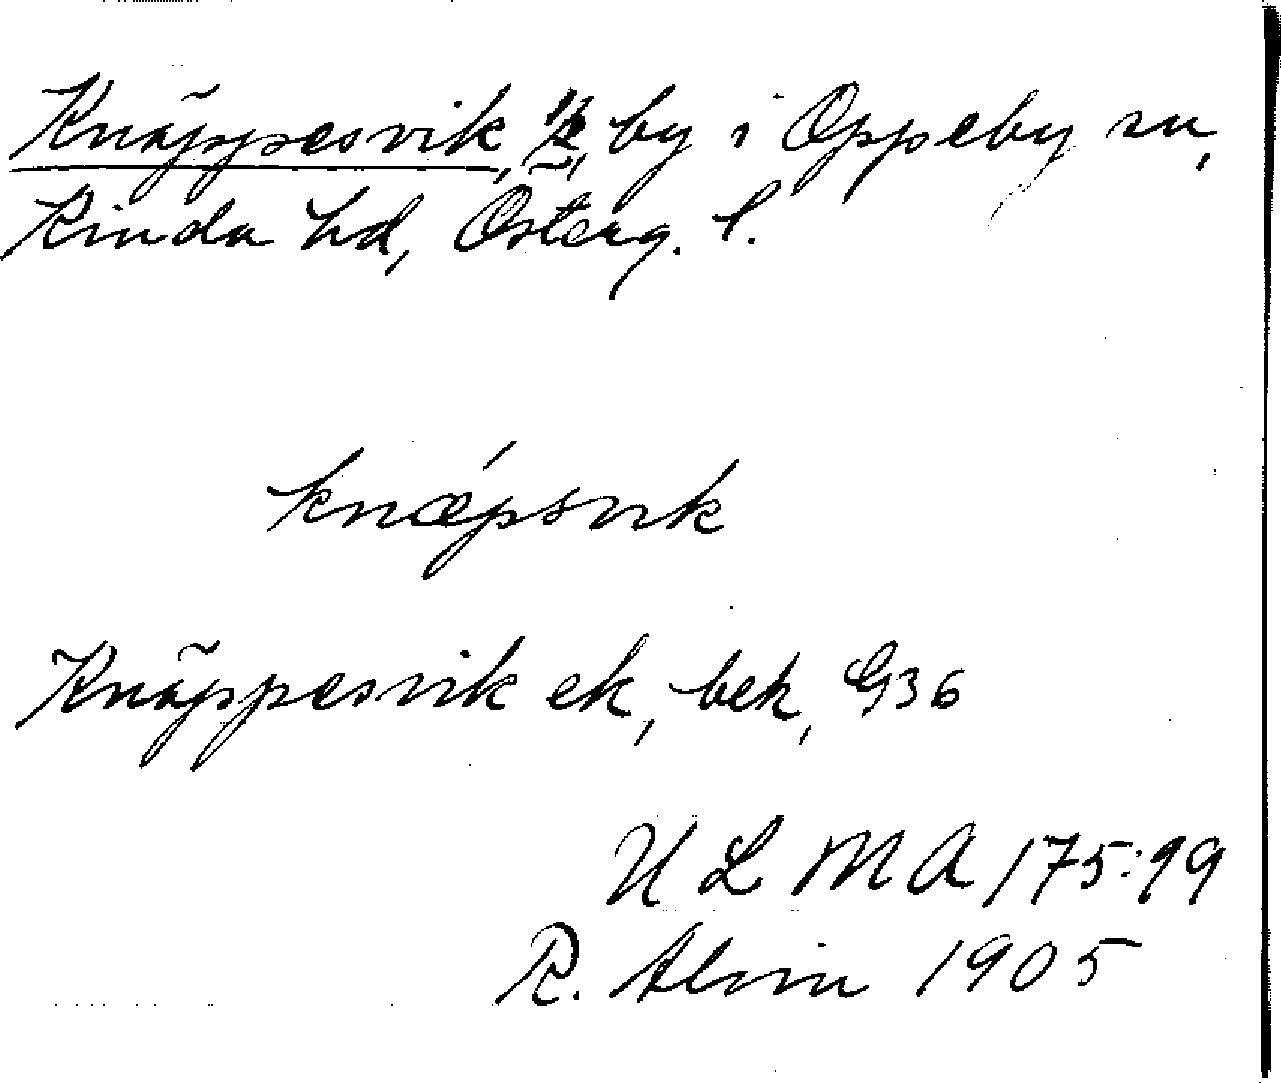 Knäppesvik, by i Oppeby sn,
Kinda hd, Österg. l.
knǽpsvik
Knäppesvik ek, bek, G36
ULMA 175:99
R. Alvin 1905